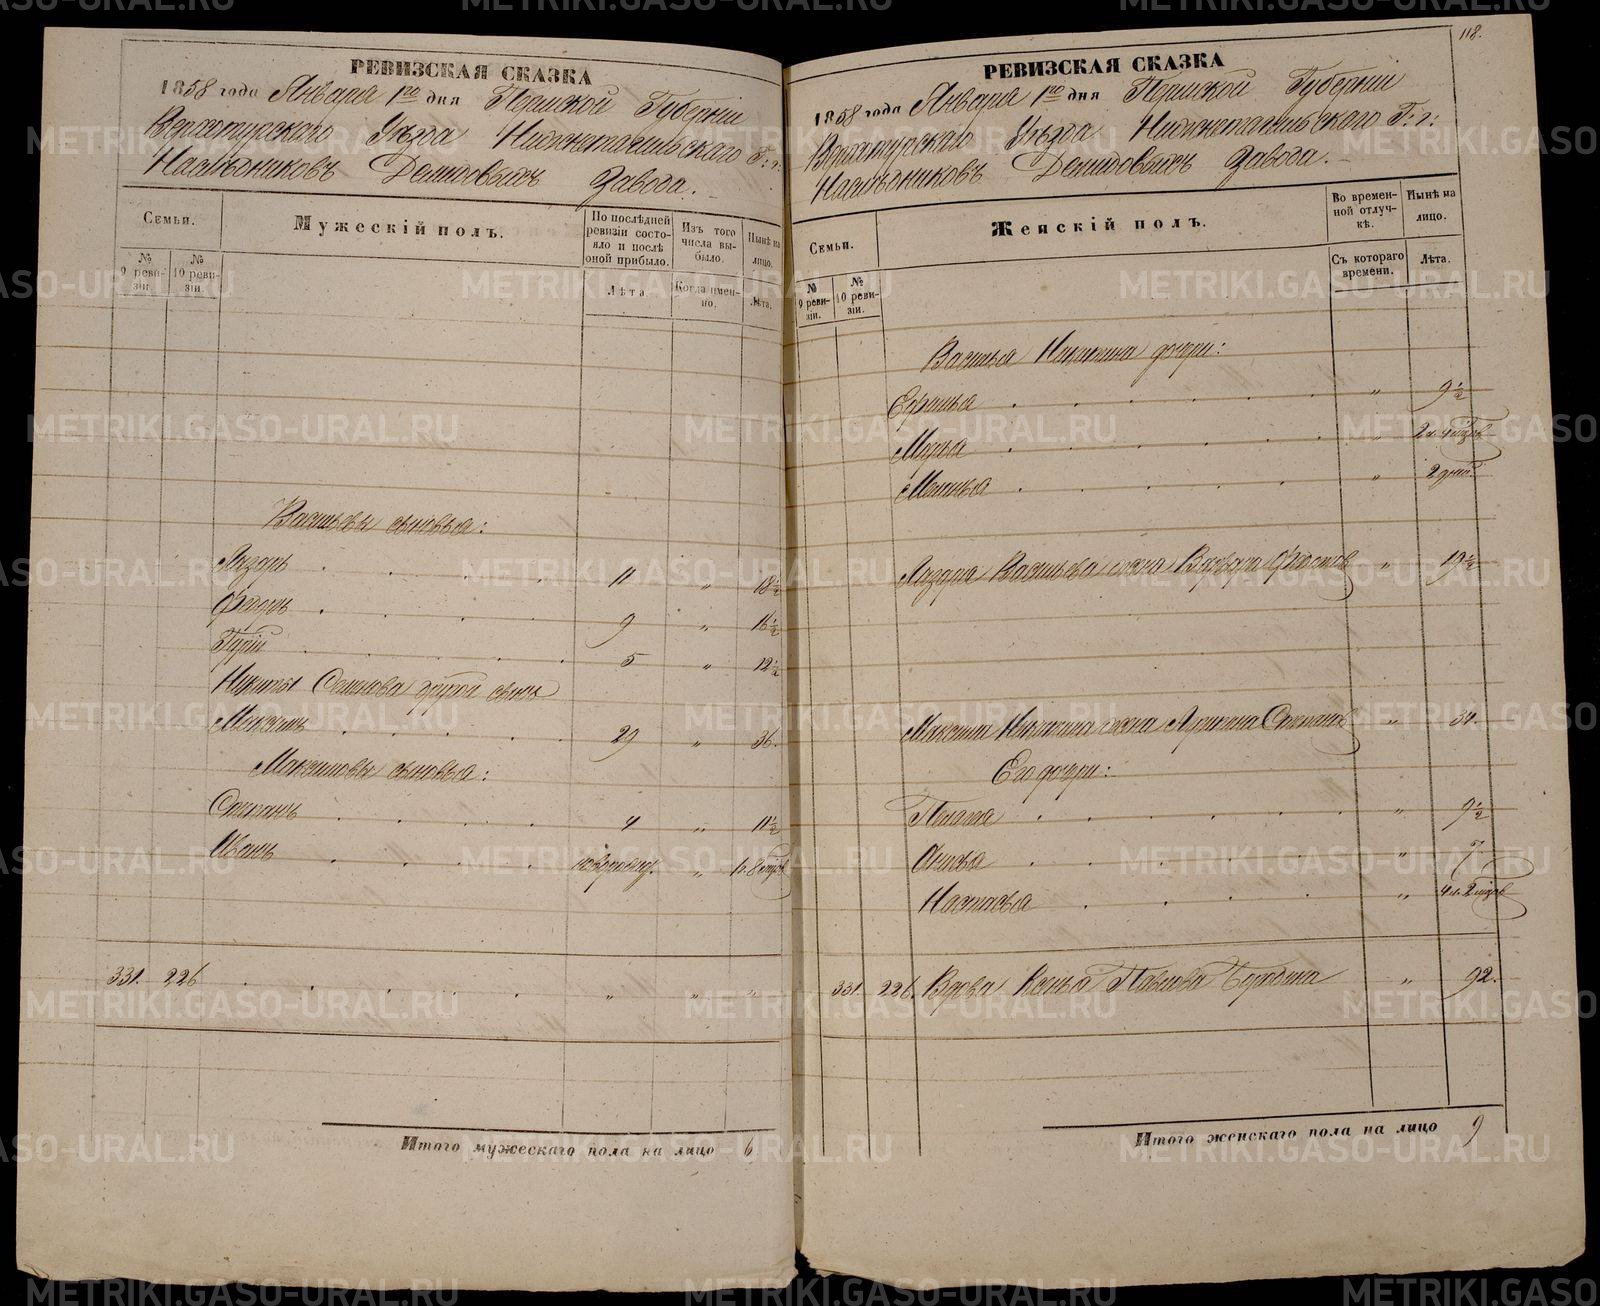 РЕВИЗСКАЯ СКАЗКА
1858 года Января 1го дня Пермской Губерніи
Верхотурскаго Уѣзда Нижнетагильскаго Г: г:
Наслѣдниковъ Демидовыхъ Завода.
Семьи.
Мужескій полъ.
По послѣдней ревизіи состояло и послѣ оной прибыло.
Изъ того числа выбыло.
Нынѣ на лицо.
№ 9 ревизіи.
№ 10 ревизіи.
Лѣта.
Когда именно.
Лѣта.
Васильевы сыновья:
Лазарь . . . . 11 „ 18½
Федоръ . . . . 9 „ 16½
Гурій . . . . 5 „ 12½
Никиты Семенова другой сынъ
Максимъ . . . . 29 „ 36.
Максимовы сыновья:
Степанъ . . . . 4 „ 11½
Иванъ . . . . новорожд. „
331. 226 . . . . . „ „ „
Итого мужескаго пола на лицо 6
118.
РЕВИЗСКАЯ СКАЗКА
1858 года Января 1го дня Пермской Губерніи
Верхотурскаго Уѣзда Нижнетагильскаго Г: г:
Наслѣдниковъ Демидовыхъ Завода.
Семьи.
Женскій полъ.
Во временной отлучкѣ.
Нынѣ на лицо.
№ 9 ревизіи.
№ 10 ревизіи.
Съ котораго времени.
Лѣта.
Василья Никитина дочери:
„ 9½
Марья . . . . „
. . . . „ 2 дней
Лазаря Васильева жена Варвара „ 19½
Максима Никитина жена Степанов „ 34.
Его дочери:
. . . . „ 9½
. . . . „ 7
Настасья . . . . „
331. 226. Вдова Ксенья Павлова „ 92.
Итого женскаго пола на лицо 9
METRIKI.GASO-URAL.RU